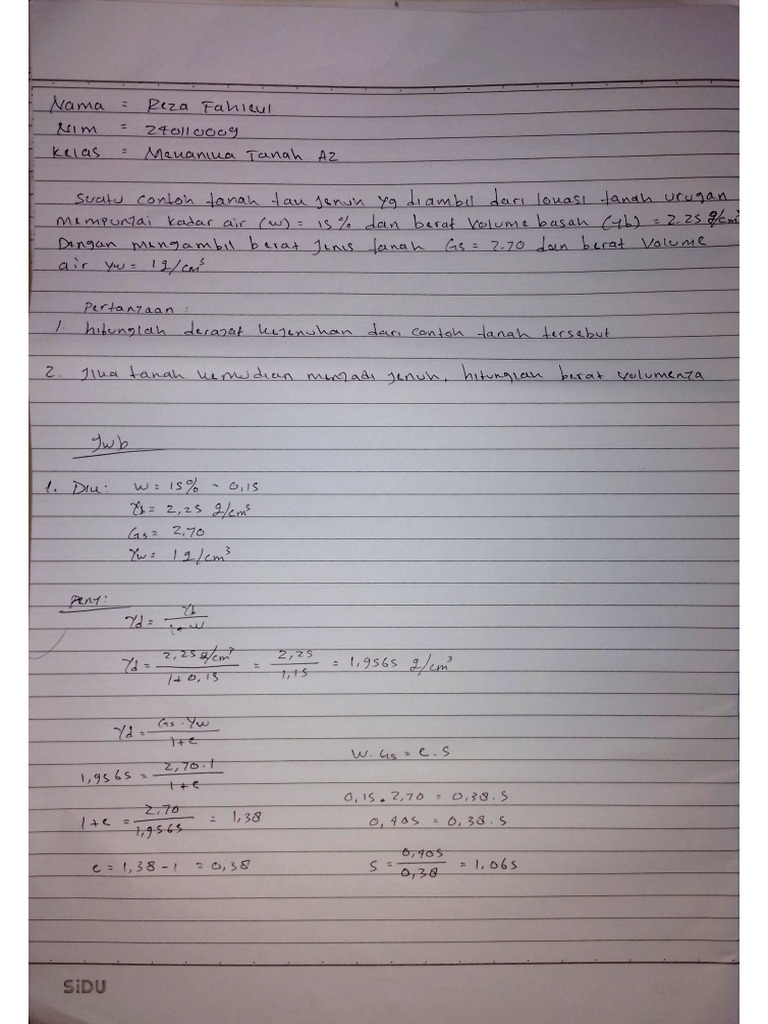 Nama = Reza Fahlevi
Nim = 240110009
Kelas = Mekanika Tanah A2
Suatu contoh tanah tak jenuh yg diambil dari lokasi tanah urugan
mempunyai kadar air (w) = 15% dan berat volume basah (γb) = 2.25 g/cm³
Dengan mengambil berat jenis tanah Gs = 2.70 dan berat volume
air γw = 1 g/cm³
Pertanyaan :
1. hitunglah derajat kejenuhan dari contoh tanah tersebut
2. Jika tanah kemudian menjadi jenuh, hitunglah berat volumenya
Jwb
1. Dik: W = 15% = 0,15
γb = 2,25 g/cm³
Gs = 2,70
γw = 1 g/cm³
Peny:
γd = γb / 1+W
γd = 2,25 g/cm³ / 1+0,15 = 2,25 / 1,15 = 1,9565 g/cm³
γd = Gs . γw / 1+e
1,9565 = 2,70.1 / 1+e
1+e = 2,70 / 1,9565 = 1,38
e = 1,38 - 1 = 0,38
W. Gs = e . S
0,15 . 2,70 = 0,38 . S
0,405 = 0,38 . S
S = 0,405 / 0,38 = 1,065
SiDU